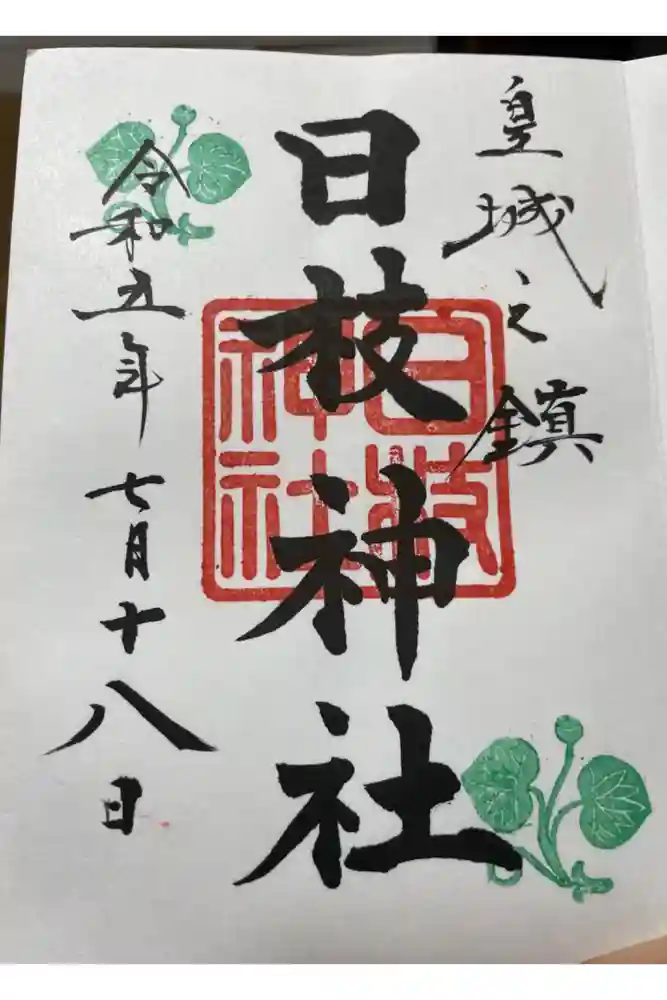 皇城之鎮
日枝神社
日枝
神社
令和五年七月十八日